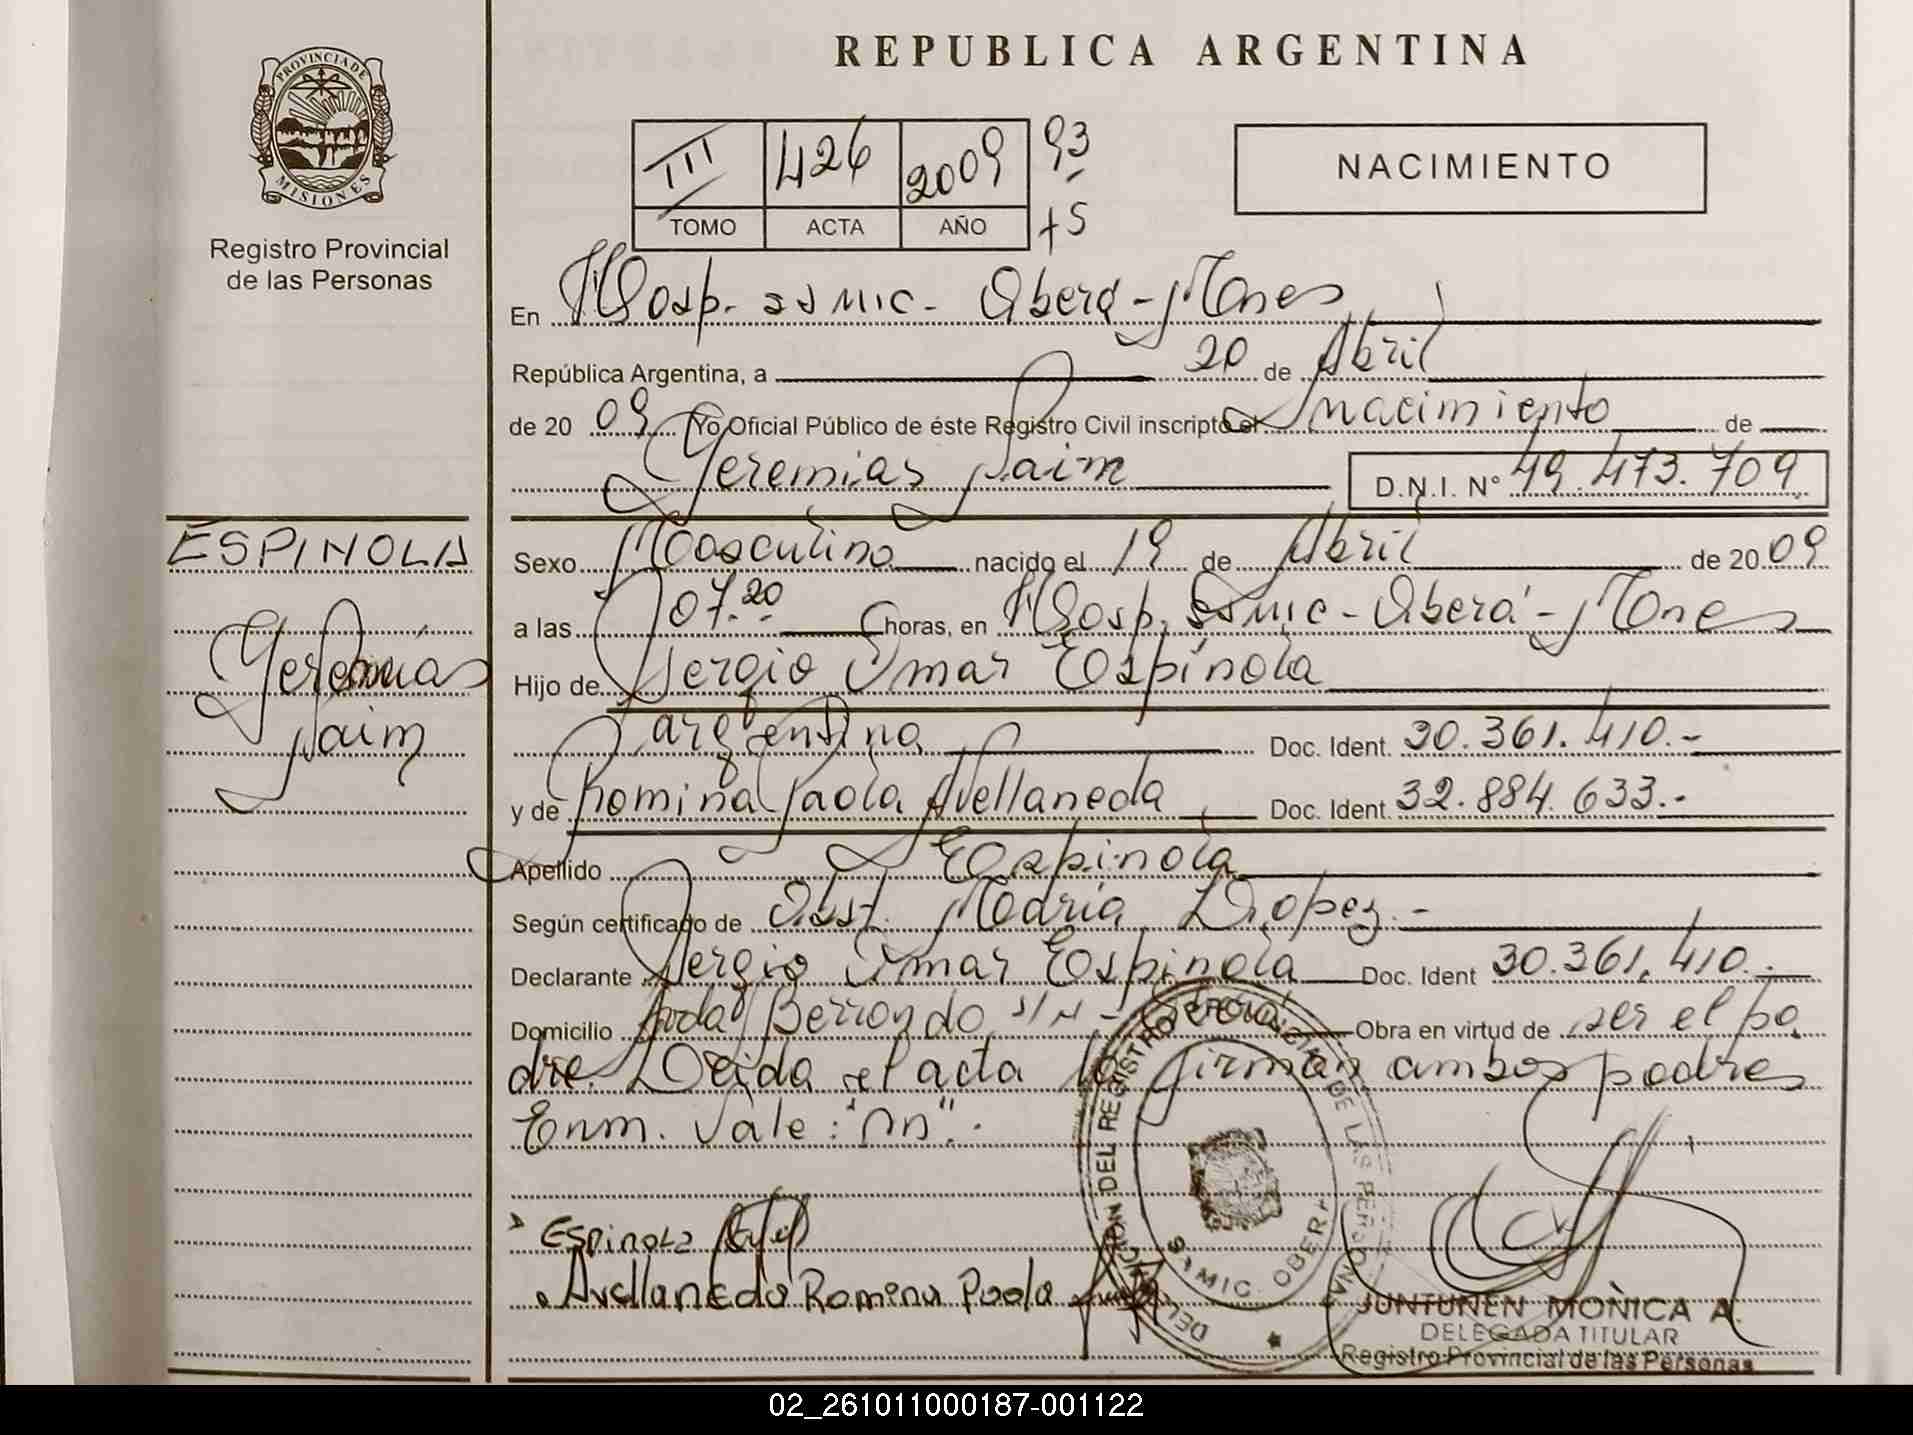 REPUBLICA ARGENTINA
PROVINCIA DE
MISIONES
Registro Provincial
de las Personas
III 426 2009 93
TOMO ACTA AÑO +5
NACIMIENTO
En Hosp. ssmic- Oberá-Mnes
República Argentina, a 20 de Abril
de 20 09 Yo Oficial Público de éste Registro Civil inscripto el nacimiento de
Jeremias Jaim D.N.I. N° 49.473.709
ESPINOLA
Jeremías
Jaim
Sexo Masculino nacido el 19 de Abril de 20 09
a las 07.20 horas, en Hosp. ssmic-Oberá-Mnes
Hijo de Sergio Omar Espínola
argentina Doc. Ident. 30.361.410.-
y de Romina Paola Avellaneda Doc. Ident. 32.884.633.-
Apellido Espínola
Según certificado de Obst. María Lopez.-
Declarante Sergio Omar Espínola Doc. Ident 30.361.410.-
Domicilio Avda Berrondo s/n - Oberá Obra en virtud de ser el pa
dre. Leida el acta la firman ambos padres
Enm. Vale: "nn".-
Espinola
Avellaneda Romina Paola
DELEGACION DEL REGISTRO PROVINCIAL DE LAS PERSONAS
SAMIC OBERA
JUNTUNEN MONICA A.
DELEGADA TITULAR
Registro Provincial de las Personas
02_261011000187-001122